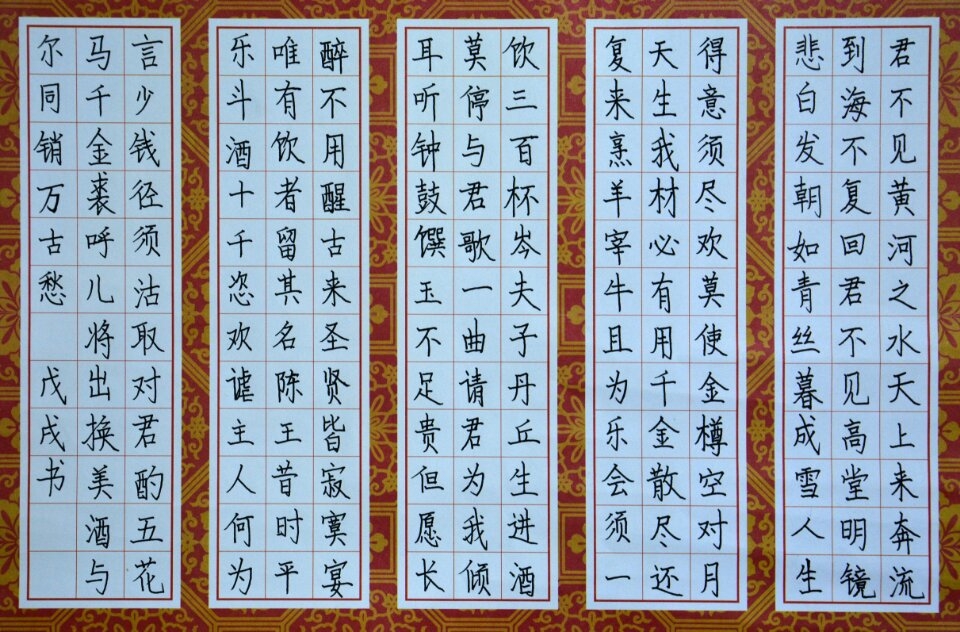 君不见黄河之水天上来奔流
到海不复回君不见高堂明镜
悲白发朝如青丝暮成雪人生
得意须尽欢莫使金樽空对月
天生我材必有用千金散尽还
复来烹羊宰牛且为乐会须一
饮三百杯岑夫子丹丘生进酒
莫停与君歌一曲请君为我倾
耳听钟鼓馔玉不足贵但愿长
醉不用醒古来圣贤皆寂寞宴
唯有饮者留其名陈王昔时平
乐斗酒十千恣欢谑主人何为
言少钱径须沽取对君酌五花
马千金裘呼儿将出换美酒与
尔同销万古愁 戊戌书